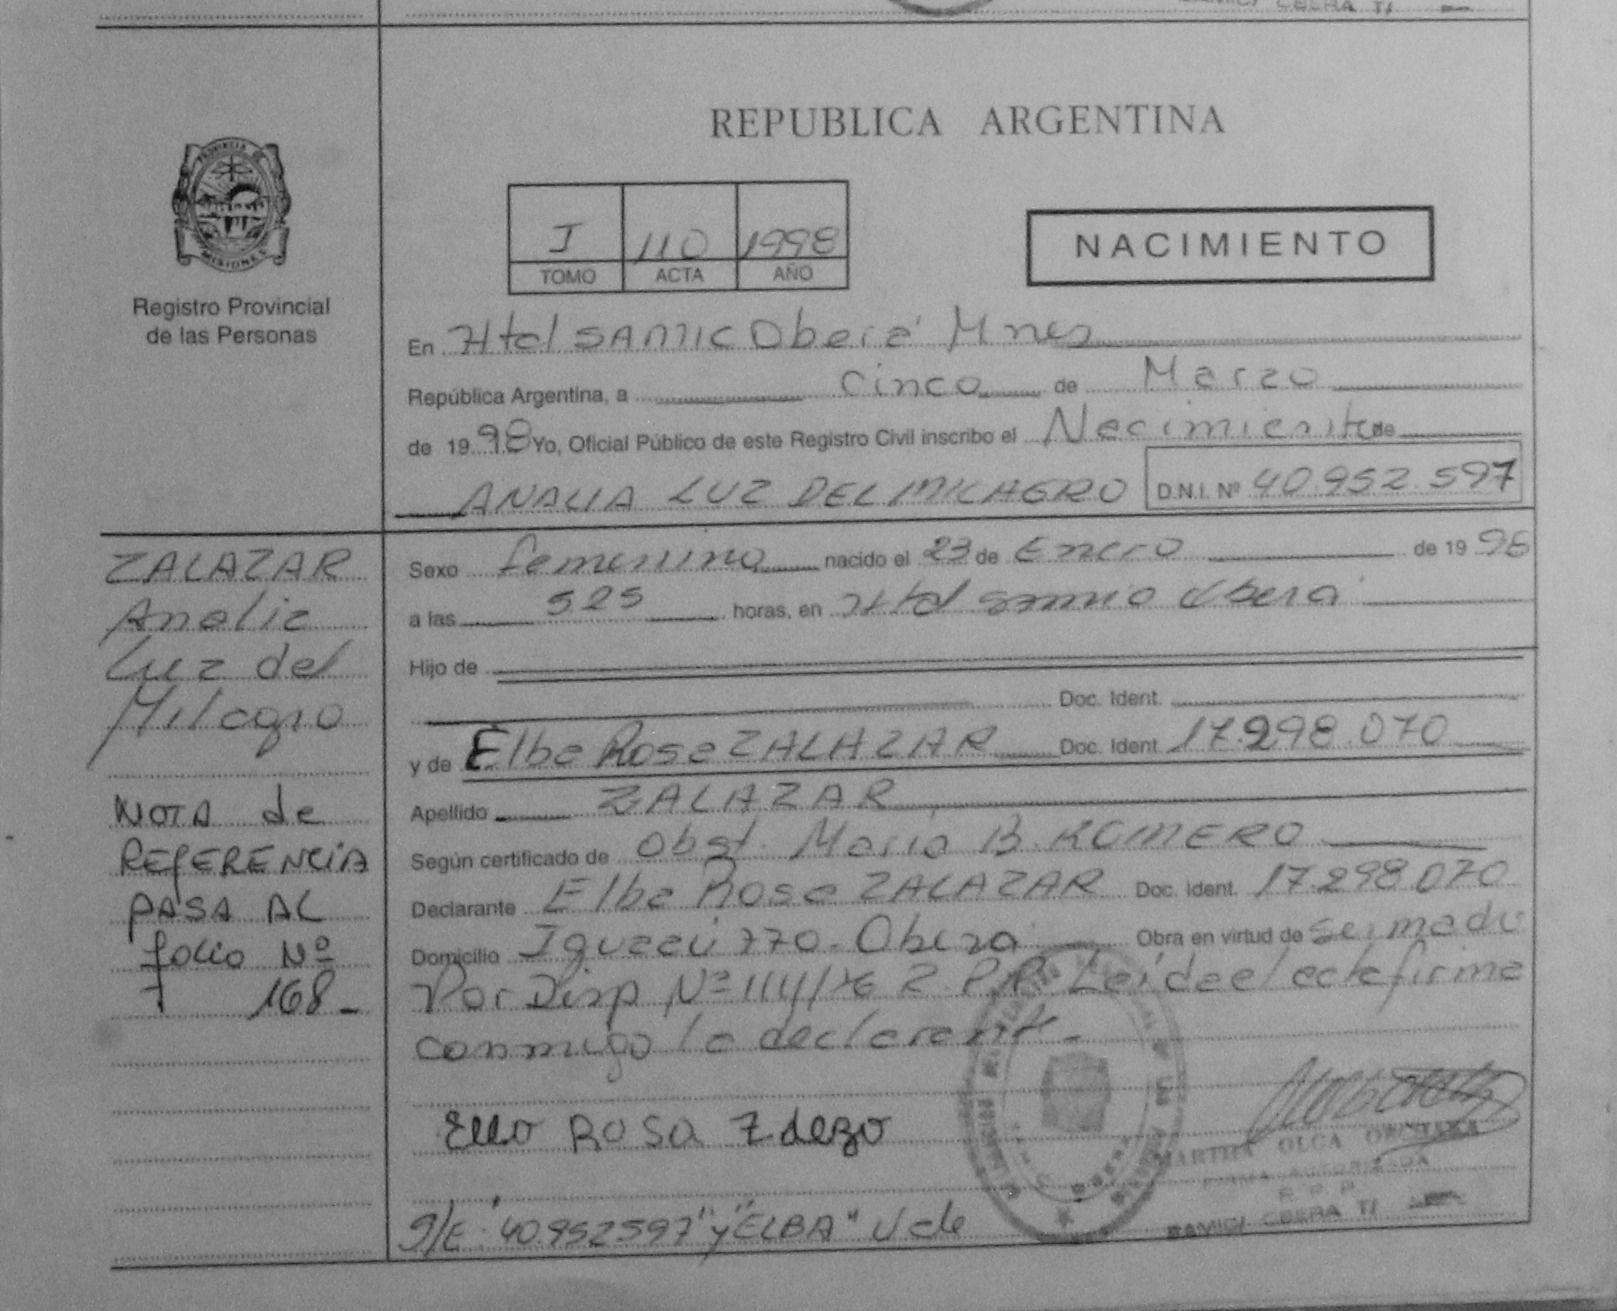 REPUBLICA ARGENTINA
PROVINCIA DE
MISIONES
Registro Provincial
de las Personas
I 110 1998
TOMO ACTA AÑO
NACIMIENTO
En Htal SAMIC Oberá Mnes
República Argentina, a cinco de Marzo
de 19 98 Yo, Oficial Público de este Registro Civil inscribo el Nacimiento de
ANALIA LUZ DEL MILAGRO D.N.I. Nº 40.952.597
ZALAZAR
Analia
Luz del
Milagro
NOTA de
REFERENCIA
PASA AL
folio Nº
168-
Sexo femenino nacido el 23 de Enero de 19 98
a las 525 horas, en Htal samic Oberá
Hijo de
Doc. Ident.
y de Elba Rosa ZALAZAR Doc. Ident. 17.298.070
Apellido ZALAZAR
Según certificado de Obst. Maria B. ROMERO
Declarante Elba Rosa ZALAZAR Doc. Ident. 17.298.070
Domicilio Iguazú 770-Oberá Obra en virtud de
Por Disp Nº 114/76 R.P.P. Leída el acta firma
conmigo la declarante.
ROSA
S/E: "40.952597" y "ELBA" Vale
MARTHA OLGA
FIRMA AUTORIZADA
R. P. P.
SAMIC/ OBERA T/
SAMIC/ OBERA T/